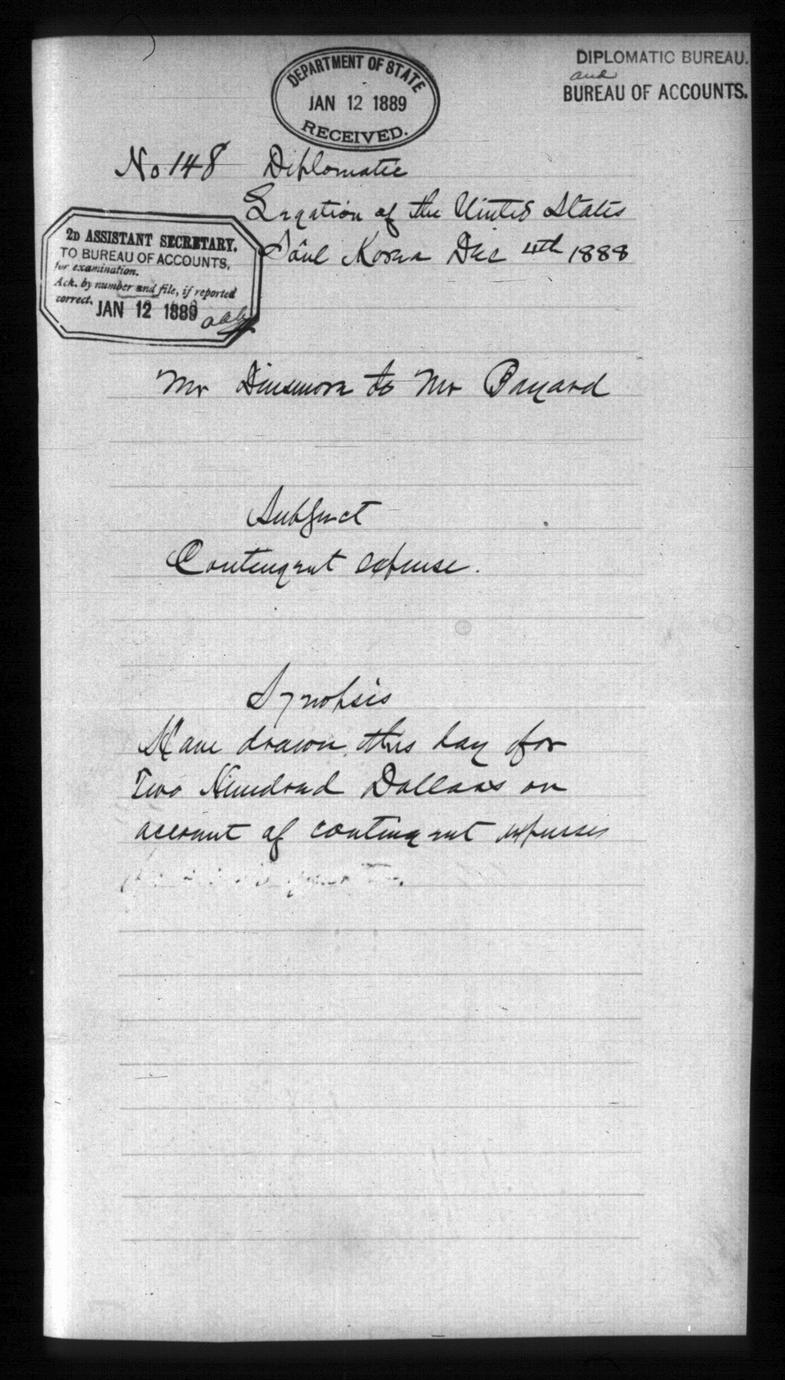 DEPARTMENT OF STATE
JAN 12 1889
RECEIVED.
DIPLOMATIC BUREAU.
and
BUREAU OF ACCOUNTS.
No 148 Diplomatic
Legation of the United States
Söul Korea Dec 4th 1888
2D ASSISTANT SECRETARY.
TO BUREAU OF ACCOUNTS,
for examination.
Ack. by number and file, if reported
correct.
JAN 12 1889
Mr Dinsmore to Mr Bayard
Subject
Contingent expense.
Synopsis
Have drawn this day for
Two Hundred Dollars on
account of contingent expenses